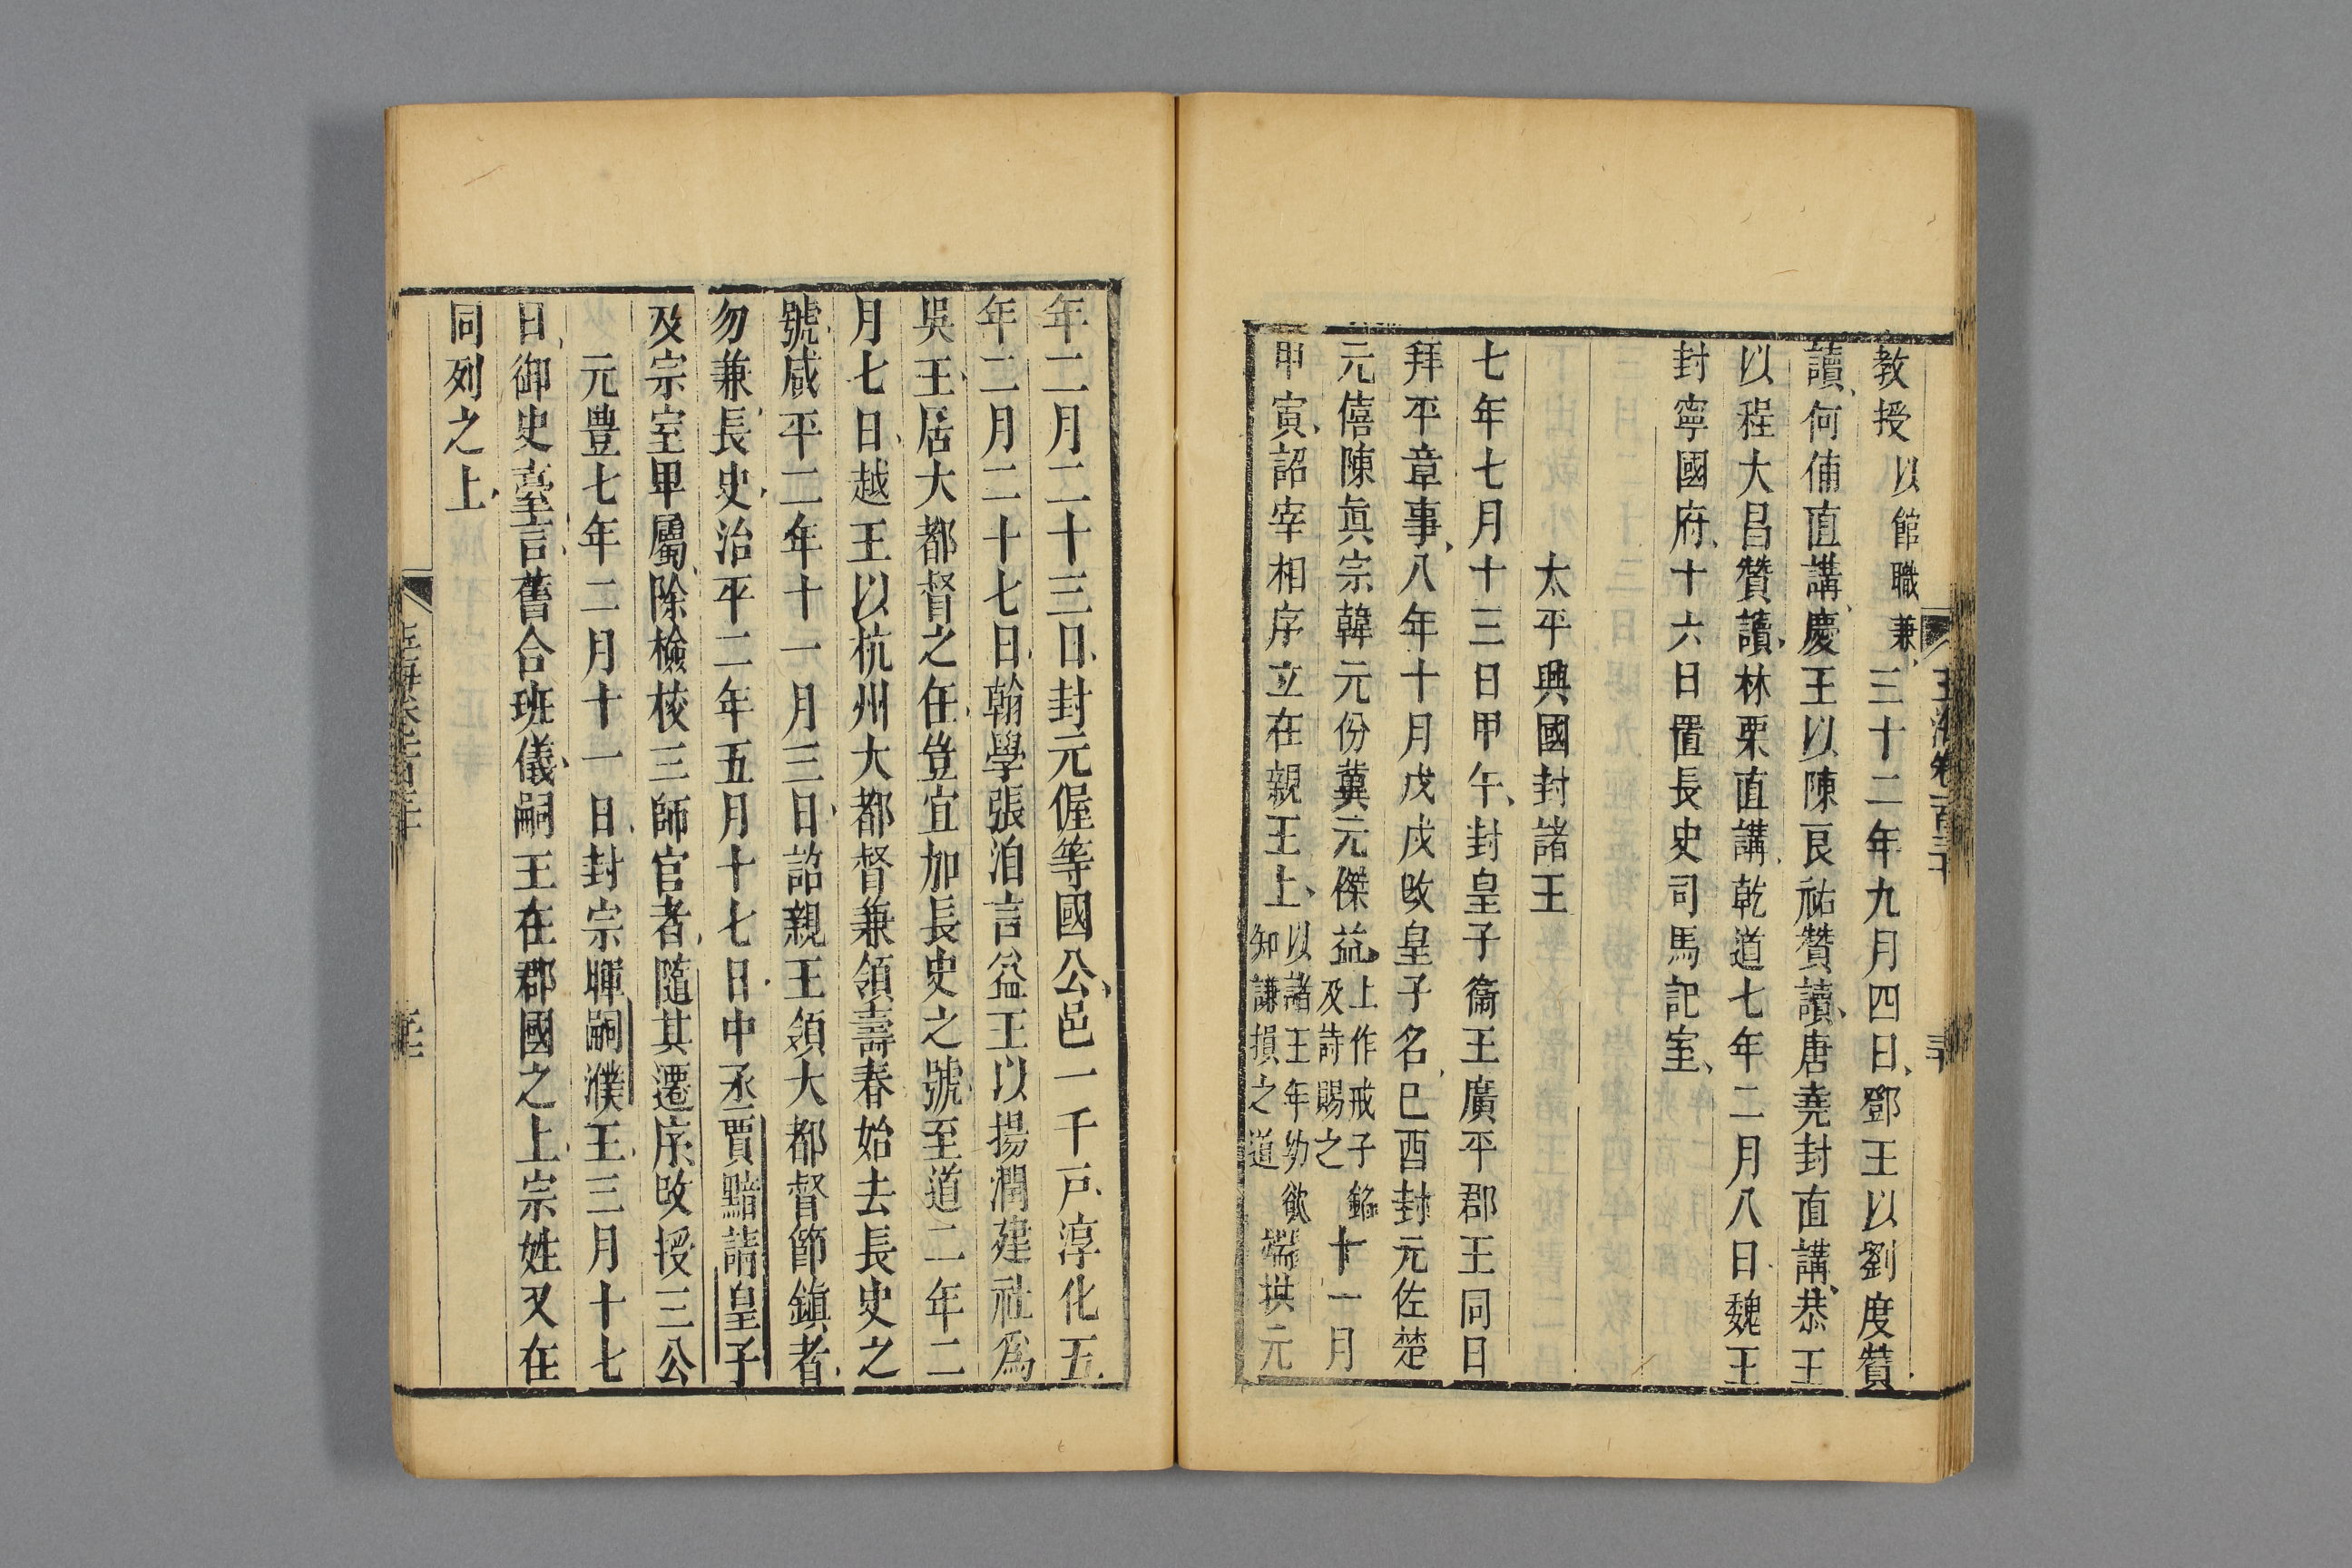 教授以館職兼三十二年九月四日鄧王以劉度贊
讀何俌直講慶王以陳良祐贊讀唐堯封直講恭王
以程大昌贊讀林栗直講乾道七年二月八日魏王
封寧國府十六日置長史司馬記室
太平興國封諸王
七年七月十三日甲午封皇子衞王廣平郡王同日
拜平章事八年十月戊戌改皇子名己酉封元佐楚
元僖陳眞宗韓元份冀元傑益上作戒子銘及詩賜之十一月
甲寅詔宰相序立在親王上以諸王年幼欲知謙損之道端拱元
年二月二十三日封元偓等國公邑一千戸淳化五
年二月二十七日翰學張洎言益王以揚潤建社爲
吳王居大都督之任豈宜加長史之號至道二年二
月七日越王以杭州大都督兼領壽春始去長史之
號咸平二年十一月三日詔親王領大都督節鎭者
勿兼長史治平二年五月十七日中丞賈黯請皇子
及宗室卑屬除檢校三師官者隨其遷序改授三公
元豊七年二月十一日封宗暉嗣濮王三月十七
日御史臺言舊合班儀嗣王在郡國之上宗姓又在
同列之上